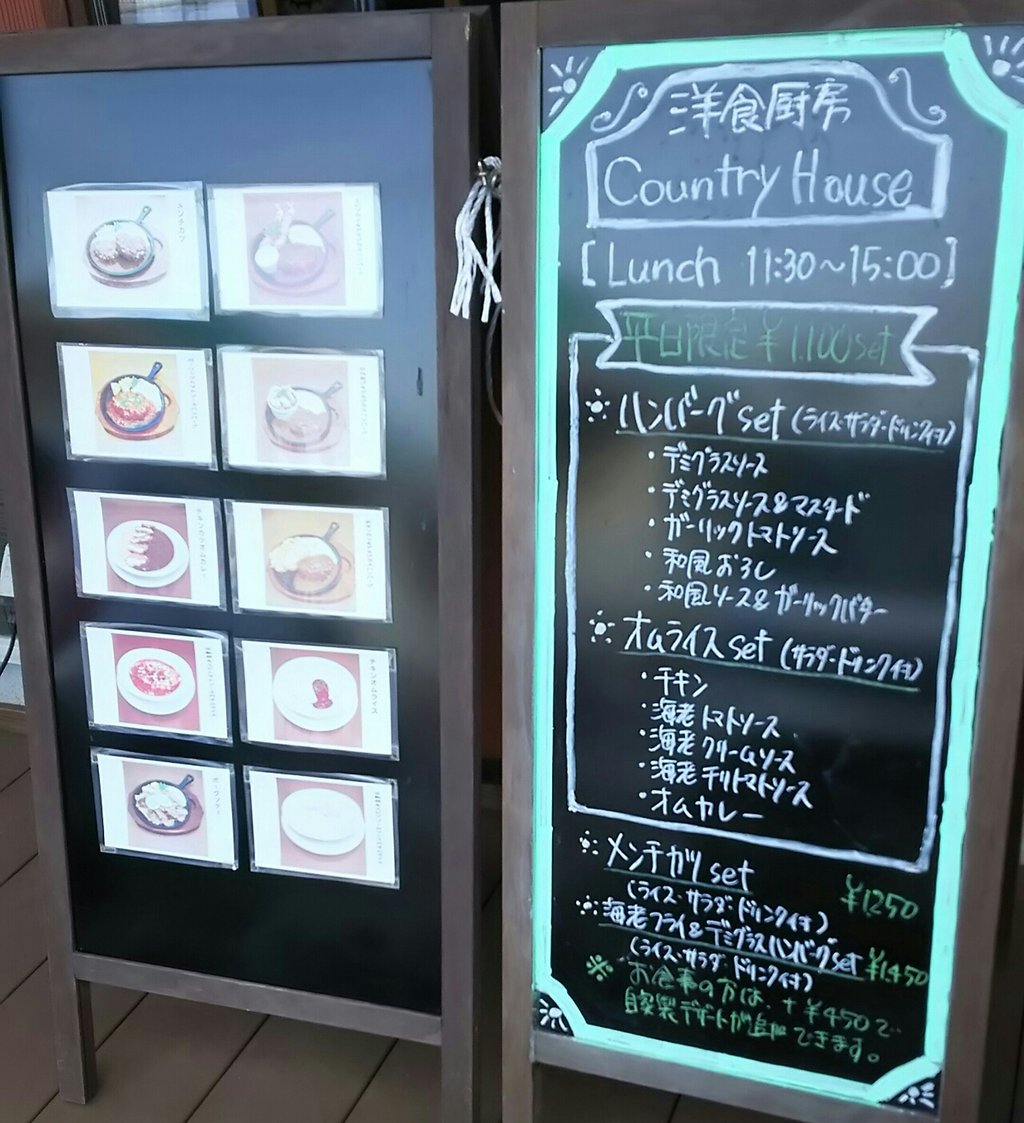 メンチカツ
チキンカツオムカレー
チキンオムライス
ポークソテー
洋食厨房
Country House
[Lunch 11:30～15:00]
平日限定¥1.100set
ハンバーグset(ライス・サラダ・ドリンク付)
・デミグラスソース
・デミグラスソース&マスタード
・ガーリックトマトソース
・和風おろし
・和風ソース&ガーリックバター
オムライスset(サラダ・ドリンク付)
・チキン
・海老トマトソース
・海老クリームソース
・海老チリトマトソース
・オムカレー
メンチカツset ¥1250
(ライス・サラダ・ドリンク付)
海老フライ&デミグラスハンバーグset ¥1450
(ライス・サラダ・ドリンク付)
※お食事の方は、+¥450で
自家製デザートが追加できます。